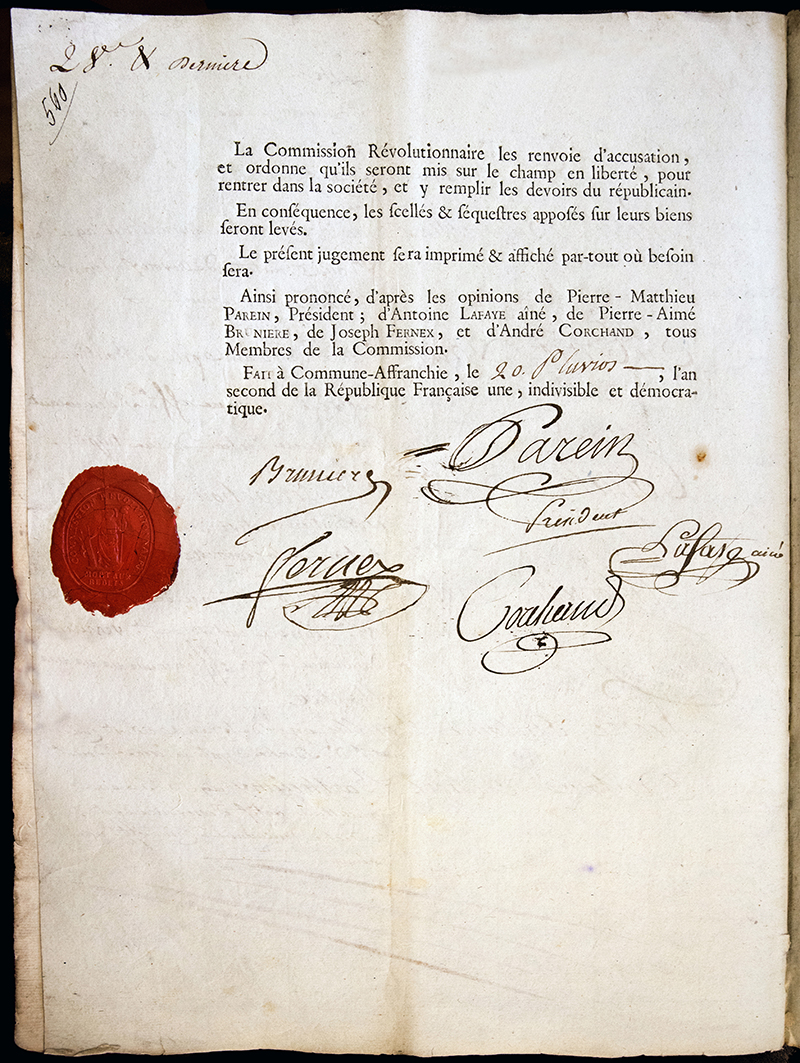 28.e & Derniere
560
La Commission Révolutionnaire les renvoie d'accusation,
et ordonne qu'ils seront mis sur le champ en liberté, pour
rentrer dans la société, et y remplir les devoirs du républicain.
En conſéquence, les ſcellés & ſéqueſtres appoſés ſur leurs biens
ſeront levés.
Le préſent jugement ſera imprimé & affiché par-tout où beſoin
ſera.
Ainsi prononcé, d'après les opinions de Pierre-Matthieu
PAREIN, Préſident; d'Antoine LAFAYE aîné, de Pierre-Aimé
BRUNIERE, de Joseph FERNEX, et d'André CORCHAND, tous
Membres de la Commission.
FAIT à Commune-Affranchie, le 20. Pluvios, l'an
second de la République Française une, indivisible et démocra-
tique.
Bruniere
Parein
Président
Fernex
Lafaye ainé
Corchand